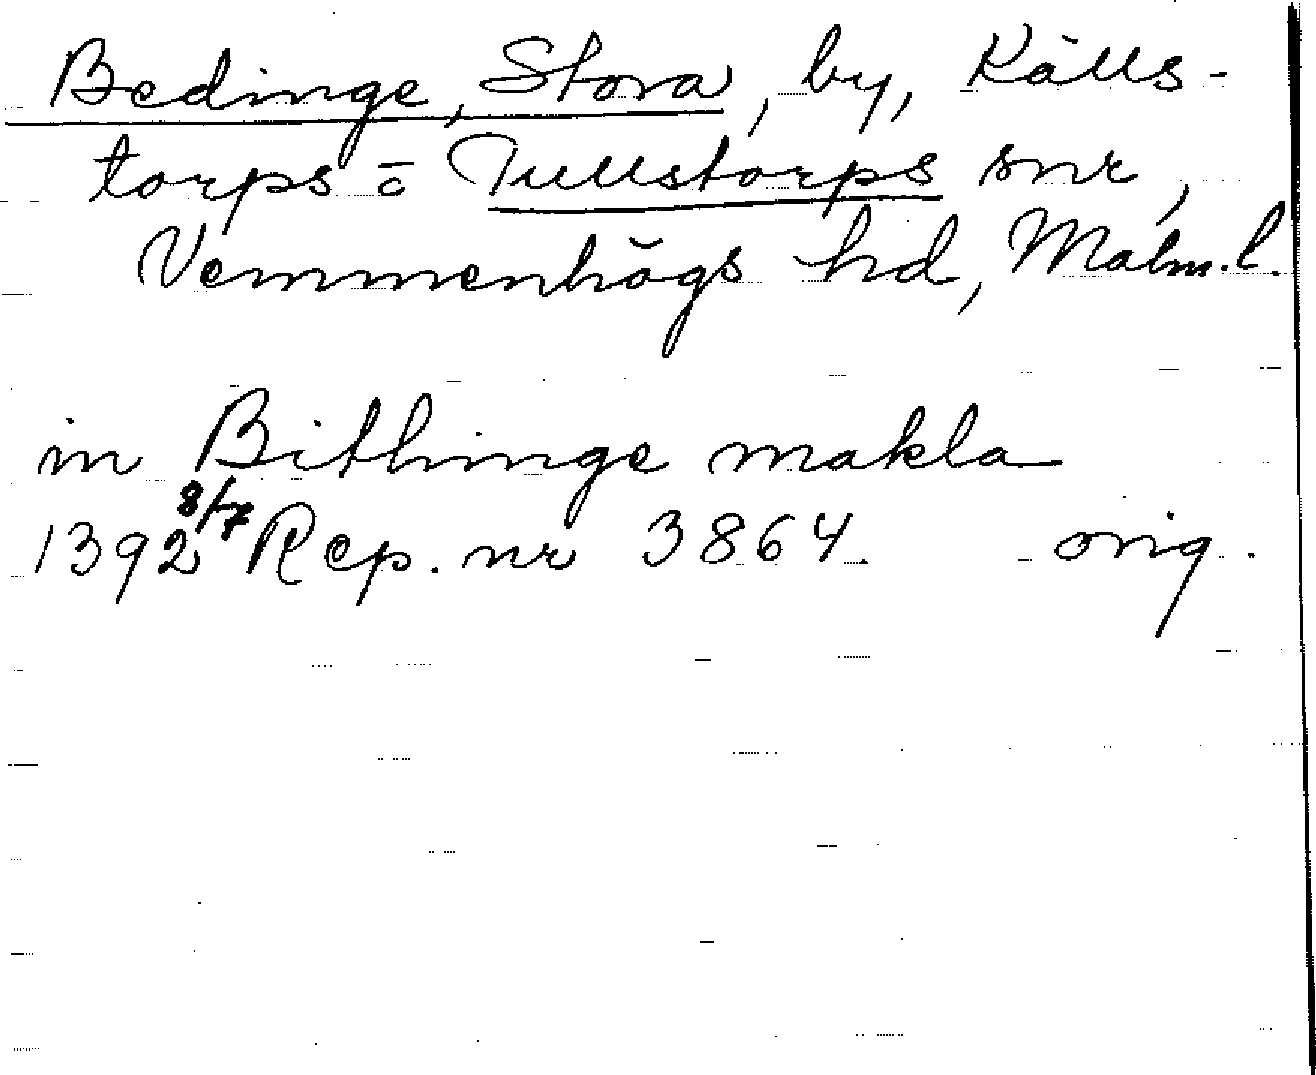 Bedinge, Stora, by, Källs-
torps o Tullstorps snr,
Vemmenhögs hd, Malm. l.
in Bithinge makla
1392 8/7 Rep. nr 3864 orig.